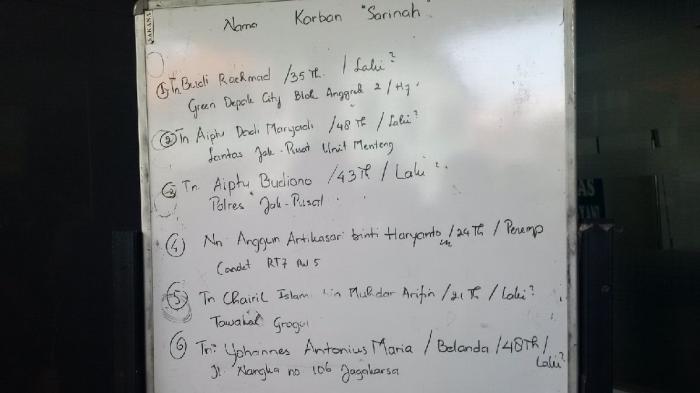 Nama Korban "Sarinah"
① Tn Budi Rachmad / 35 Th. / Laki²
Green Depok City Blok Anggrek 2 / H7.
② Tn Aiptu Dodi Maryadi / 48 Th / Laki²
Lantas Jak-Pusat Unit Menteng
③ Tn. Aiptu Budiono / 43 Th / Laki².
Polres Jak-Pusat.
④ Nn Anggun Artikasari binti Haryanto / 24 Th / Peremp
Condet RT7 RW 5
⑤ Tn Chairil Islam bin Mukdar Arifin / 21 Th / Laki²
Tawakal Grogol
⑥ Tn: Yohannes Antonius Maria / Belanda / 48 Th /
Laki²
Jl. Nangka no 106 Jagakarsa
SAKANA